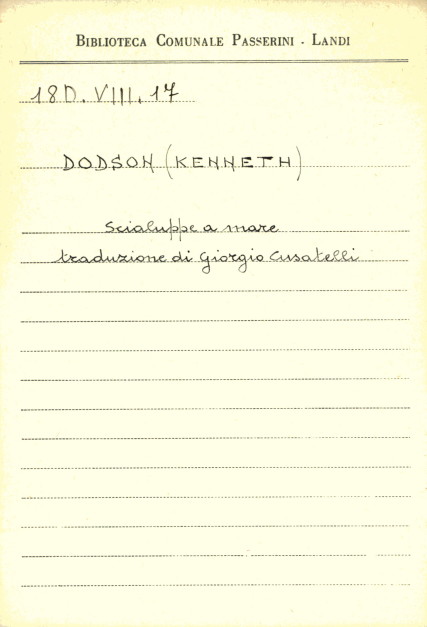 BIBLIOTECA COMUNALE PASSERINI - LANDI
18D. VIII. 17
DODSON (KENNETH)
Scialuppe a mare
traduzione di Giorgio Cusatelli